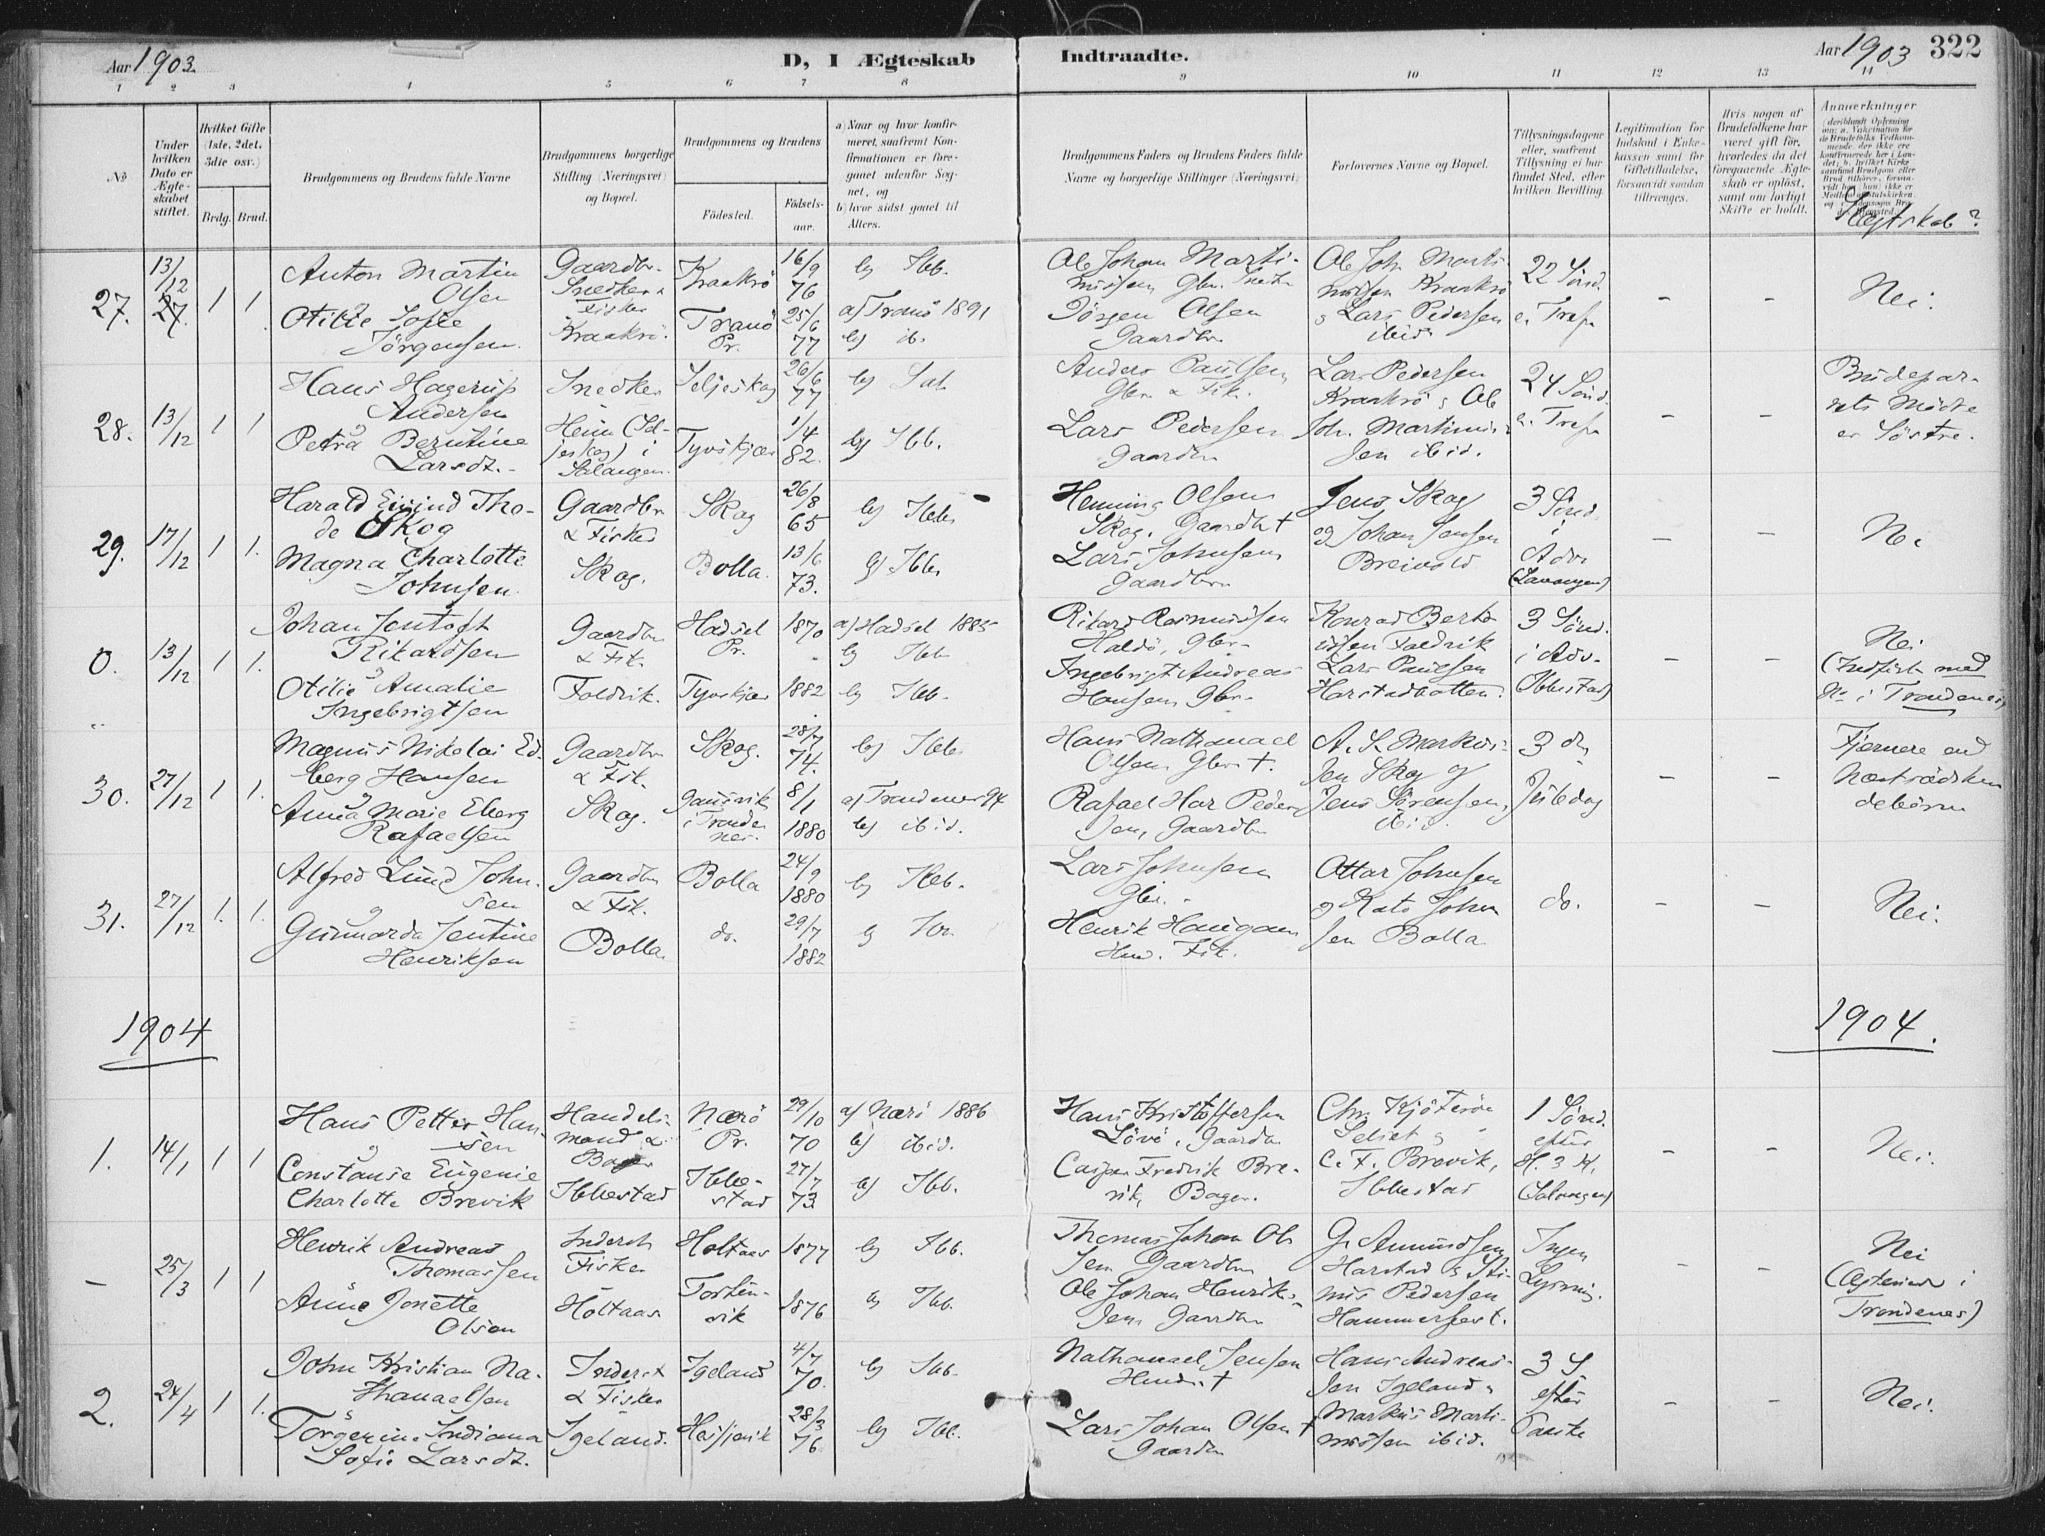 Aar 1903
D, I Ægteskab Indtraadte.
Aar 1903
322
1 2 3 4 5 6 7 8 9 10 11 12 13 11
No
Under hvilken Dato er Ægteskabet stiftet.
Hvilket Gifte (1ste. 2det. 3die osv.)
Brdg. Brud.
Brudgommens og Brudens fulde Navne
Brudgommens borgerlige Stilling (Næringsvei) og Bopæl.
Brudgommens og Brudens
Födested.
Födsels-aar.
a) Naar og hvor konfirmeret, saafremt Konfirmationen er foregaaet udenfor Sognet, og
b) hvor sidst gaaet til Alters.
Brudgommens Faders og Brudens Faders fulde Navne og borgerlige Stillinger (Næringsvei)
Forlovernes Navne og Bopæl.
Tillysningsdagene eller, saafremt Tillysning ei har fundet Sted, efter hvilken Bevilling.
Legitimation for Indskud i Enkekassen samt for Giftetilladelse, forsaavidt saadan tiltrænges.
Hvis nogen af Brudefolkene har været gift för, hvorledes da det foregaaende Ægteskab er oplöst, samt om lovligt Skifte er holdt.
Anmærkninger
Slegtskab?
27. 13/12 1 1
Anton Martin
Olsen
Otilie Sofie
Jörgensen.
Gaardbr.
Snedker &
Fisker
Kraakrö.
Kraakrö
Tranö
Pr.
16/9
76
25/6
77
b) Ibb.
a) Tranö 1891
b) ib.
Ole Johan Marti-
nussen Gbr. Snedk.
Jörgen Olsen
Gaardbr
Ole Joh. Marti-
nussen Kraakrö
& Lars Pedersen
ibid
22 Sönd.
e. Tref.
- -
Nei.
28. 13/12 1 1
Hans Hagerup
Andersen
Petra Berntine
Larsdt.
Snedker
Heim (Sel-
jeskog) i
Salangen.
Seljeskog
Tyvskjær
26/6
77
1/4
82.
b) Sal.
b) Ibb.
Anders Paulsen
Gbr. & Fik.
Lars Pedersen
Gaardbr
Lars Pedersen
Kraakrö & Ole
Joh. Martinus-
sen ibid.
24 Sönd.
e. Tref.
- -
Brudepar-
rets Mödre
er Söstre.
29. 17/12 1 1.
Harald Eivind Tho-
de Skog
Magna Charlotte
Johnsen.
Gaardbr
& Fisker
Skog.
Skog
Bolla.
26/8
65
13/6
73.
b) Ibb.
b) Ibb.
Henning Olsen
Skog, Gaardbr †
Lars Johnsen
Gaardbr
Jens Skog
og Johan Jensen
Breivold
3 Sönd.
i
Adv.
(Lavangen)
- -
Nei
0. 13/12 1 1.
Johan Jentoft
Rikardsen
Otilie Amalie
Ingebrigtsen
Gaardbr
& Fik.
Foldvik.
Hadsel
Pr.
Tyvskjær
1870
1882
a) Hadsel 1885
b) Ibb.
b) Ibb.
Rikard Rasmussen
Haldö, Gbr.
Ingebrigt Andreas
Hansen Gbr.
Konrad Bert-
ussen Foldvik
Lars Paulsen
Harstadbotten.
3 Sönd.
i Adv.
(Ibbestad)
- -
Nei
(Indfört med
No i Trondenes)
30. 27/12 1 1.
Magnus Nikolai Ed-
berg Hansen
Anna Marie Eberg
Rafaelsen
Gaardbr
& Fik.
Skog.
Skog.
Gausvik
i Tronde
nes.
28/7
74.
8/1
1880
b) Ibb.
a) Trondenes 94
b) ibid.
Hans Nathanael
Olsen Gbr †.
Rafael Har Peder-
sen, Gaardbr
A. S. Markus-
sen Skog og
Jens Sörensen,
ibid.
3 d
Juledag
- -
Fjernere end
Næstsödsken
debörn
31. 27/12 1. 1.
Alfred Lund John-
sen
Gunnarda Jentine
Henriksen
Gaardbr
& Fik.
Bolla.
Bolla
do.
24/9
1880
29/7
1882
b) Ibb.
b) Ibb.
Lars Johnsen
Gbr.
Henrik Haugan
Hmd. Fik.
Ottar Johnsen
og Kato John
sen Bolla
do.
- -
Nei.
1904
1904.
1. 14/1 1 1
Hans Petter Han-
sen
Constanse Eugenie
Charlotte Brevik
Handels-
mand &
Bager
Ibbestad
Nærö
Pr.
Ibbe-
stad
29/10
70
27/7
73
a) Nærö 1886
b) ibid.
b) Ibb.
Hans Kristoffersen
Lövö, Gaardbr
Casper Fredrik Bre-
vik, Bager.
Chr. Kjöterön
Seliet &
C. F. Brevik,
Ibbestad
1 Sönd.
efter
H. 3 K.
(Salangen)
- -
Nei.
- 25/3 1 1
Henrik Andreas
Thomassen
Anne Jonette
Olsen
Inderst
Fisker
Holtaas
Holtaas
Forsten-
vik
1877
1876
b) Ibb.
b) Ibb.
Thomas Johan Ol-
sen Gaardbr
Ole Johan Henrik-
sen Gaardbr
G. Amundsen
Harstad & Sti-
nus Pedersen
Hammerfest.
Ingen
Lysning.
- -
Nei
(Egteviede i
Trondenes)
2. 24/4 1 1.
John Kristian Na-
thanaelsen
Torgerine Indiana
Sofie Larsdt.
Inderst
& Fisker
Igeland.
Igeland
Hesjevik
4/7
70.
28/3
76
b) Ibb.
b) Ibb.
Nathanael Jensen
Hmd. †
Lars Johan Olsen †
Gaardbr
Hans Andreas-
sen Igeland &
Markus Marti-
nussen ibid.
3 S.
efter
Paaske
- -
Nei.